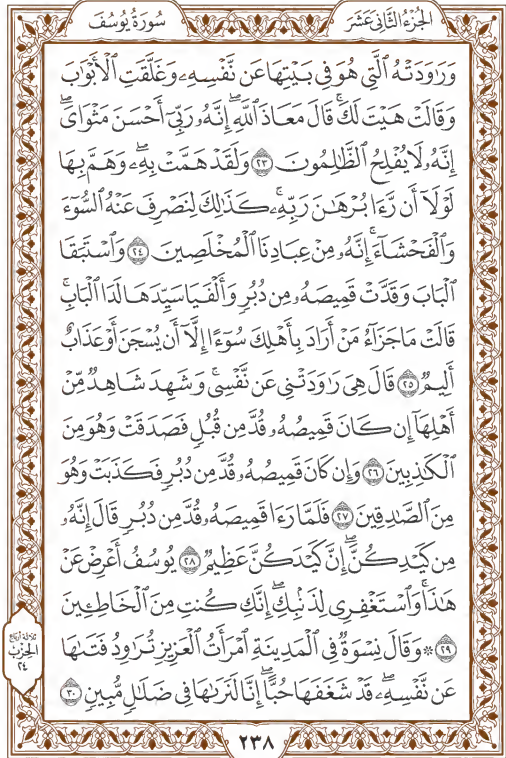 الجُزْءُ الثَّانِي عَشَرَ
سُورَةُ يُوسُفَ
وَرَٰوَدَتْهُ ٱلَّتِي هُوَ فِي بَيْتِهَا عَن نَّفْسِهِۦ وَغَلَّقَتِ ٱلْأَبْوَٰبَ
وَقَالَتْ هَيْتَ لَكَۚ قَالَ مَعَاذَ ٱللَّهِۖ إِنَّهُۥ رَبِّيٓ أَحْسَنَ مَثْوَايَۖ
إِنَّهُۥ لَا يُفْلِحُ ٱلظَّٰلِمُونَ ٢٣ وَلَقَدْ هَمَّتْ بِهِۦۖ وَهَمَّ بِهَا
لَوْلَآ أَن رَّءَا بُرْهَٰنَ رَبِّهِۦۚ كَذَٰلِكَ لِنَصْرِفَ عَنْهُ ٱلسُّوٓءَ
وَٱلْفَحْشَآءَۚ إِنَّهُۥ مِنْ عِبَادِنَا ٱلْمُخْلَصِينَ ٢٤ وَٱسْتَبَقَا
ٱلْبَابَ وَقَدَّتْ قَمِيصَهُۥ مِن دُبُرٍ وَأَلْفَيَا سَيِّدَهَا لَدَا ٱلْبَابِۚ
قَالَتْ مَا جَزَآءُ مَنْ أَرَادَ بِأَهْلِكَ سُوٓءًا إِلَّآ أَن يُسْجَنَ أَوْ عَذَابٌ
أَلِيمٌ ٢٥ قَالَ هِيَ رَٰوَدَتْنِي عَن نَّفْسِيۚ وَشَهِدَ شَاهِدٌ مِّنْ
أَهْلِهَآ إِن كَانَ قَمِيصُهُۥ قُدَّ مِن قُبُلٍ فَصَدَقَتْ وَهُوَ مِنَ
ٱلْكَٰذِبِينَ ٢٦ وَإِن كَانَ قَمِيصُهُۥ قُدَّ مِن دُبُرٍ فَكَذَبَتْ وَهُوَ
مِنَ ٱلصَّٰدِقِينَ ٢٧ فَلَمَّا رَءَا قَمِيصَهُۥ قُدَّ مِن دُبُرٍ قَالَ إِنَّهُۥ
مِن كَيْدِكُنَّۖ إِنَّ كَيْدَكُنَّ عَظِيمٌ ٢٨ يُوسُفُ أَعْرِضْ عَنْ
هَٰذَاۚ وَٱسْتَغْفِرِي لِذَنۢبِكِۖ إِنَّكِ كُنتِ مِنَ ٱلْخَاطِـِٔينَ
٢٩ ۞ وَقَالَ نِسْوَةٌ فِي ٱلْمَدِينَةِ ٱمْرَأَتُ ٱلْعَزِيزِ تُرَٰوِدُ فَتَىٰهَا
عَن نَّفْسِهِۦۖ قَدْ شَغَفَهَا حُبًّاۖ إِنَّا لَنَرَىٰهَا فِي ضَلَٰلٍ مُّبِينٍ ٣٠
ثلاثة أرباع
الحزب
٢٤
٢٣٨